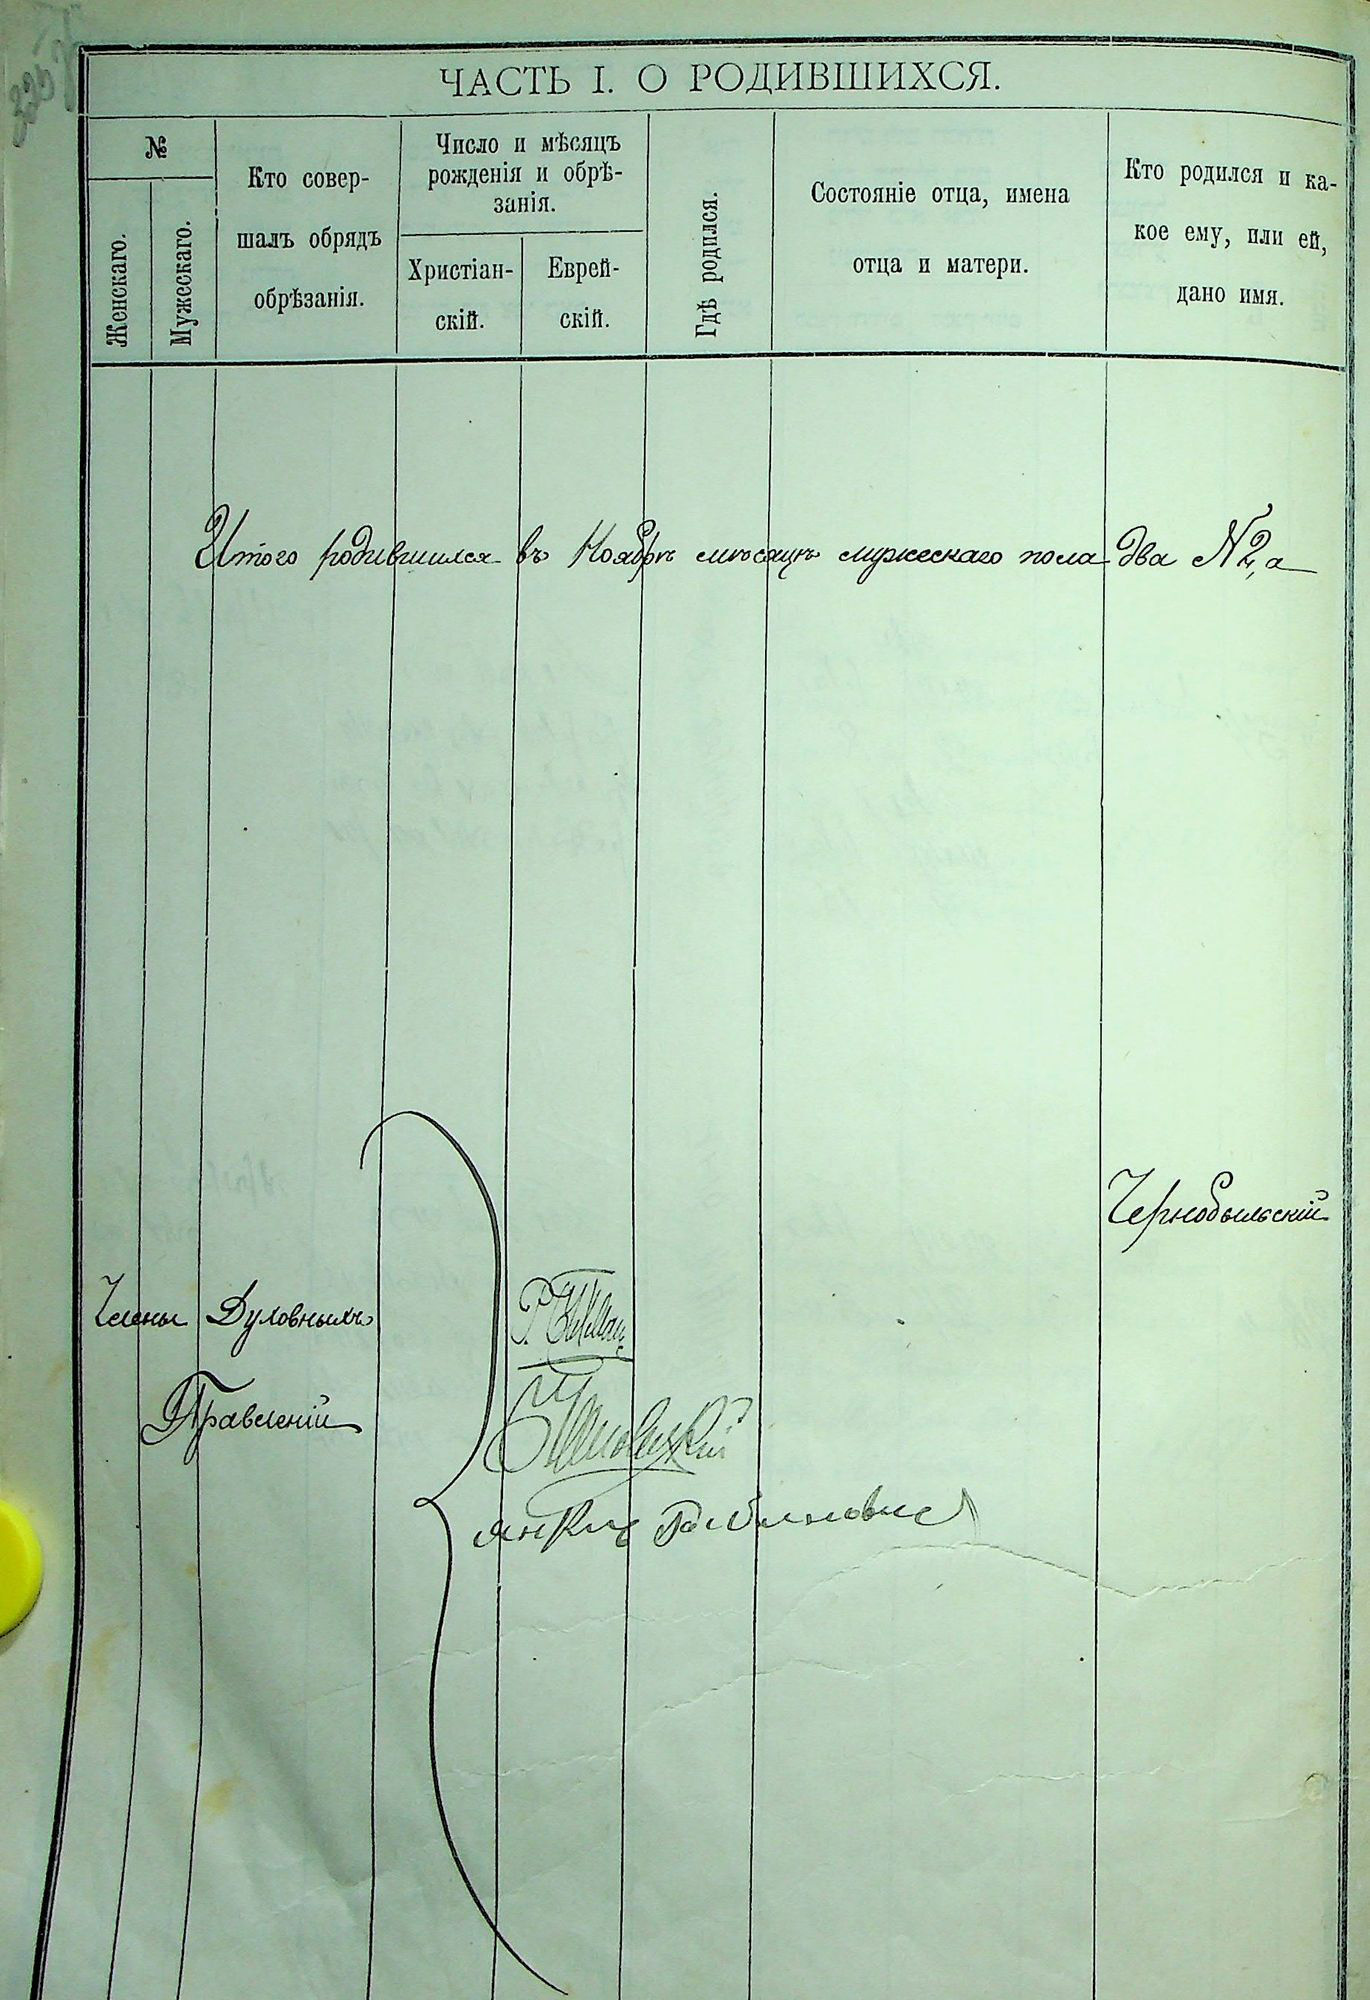 ЧАСТЬ I. О РОДИВШИХСЯ.
№
Женскаго.
Мужескаго.
Кто совер-
шалъ обрядъ
обрѣзанія.
Число и мѣсяцъ
рожденія и обрѣ-
занія.
Христіан-
скій.
Еврей-
скій.
Гдѣ родился.
Состояніе отца, имена
отца и матери.
Кто родился и ка-
кое ему, или ей,
дано имя.
Итого родившихся въ Ноябрѣ мѣсяцѣ мужескаго пола два № 2, а
Чернобыльскій
Члены Духовныхъ
Правленій
Янкиъ Рабиновичъ